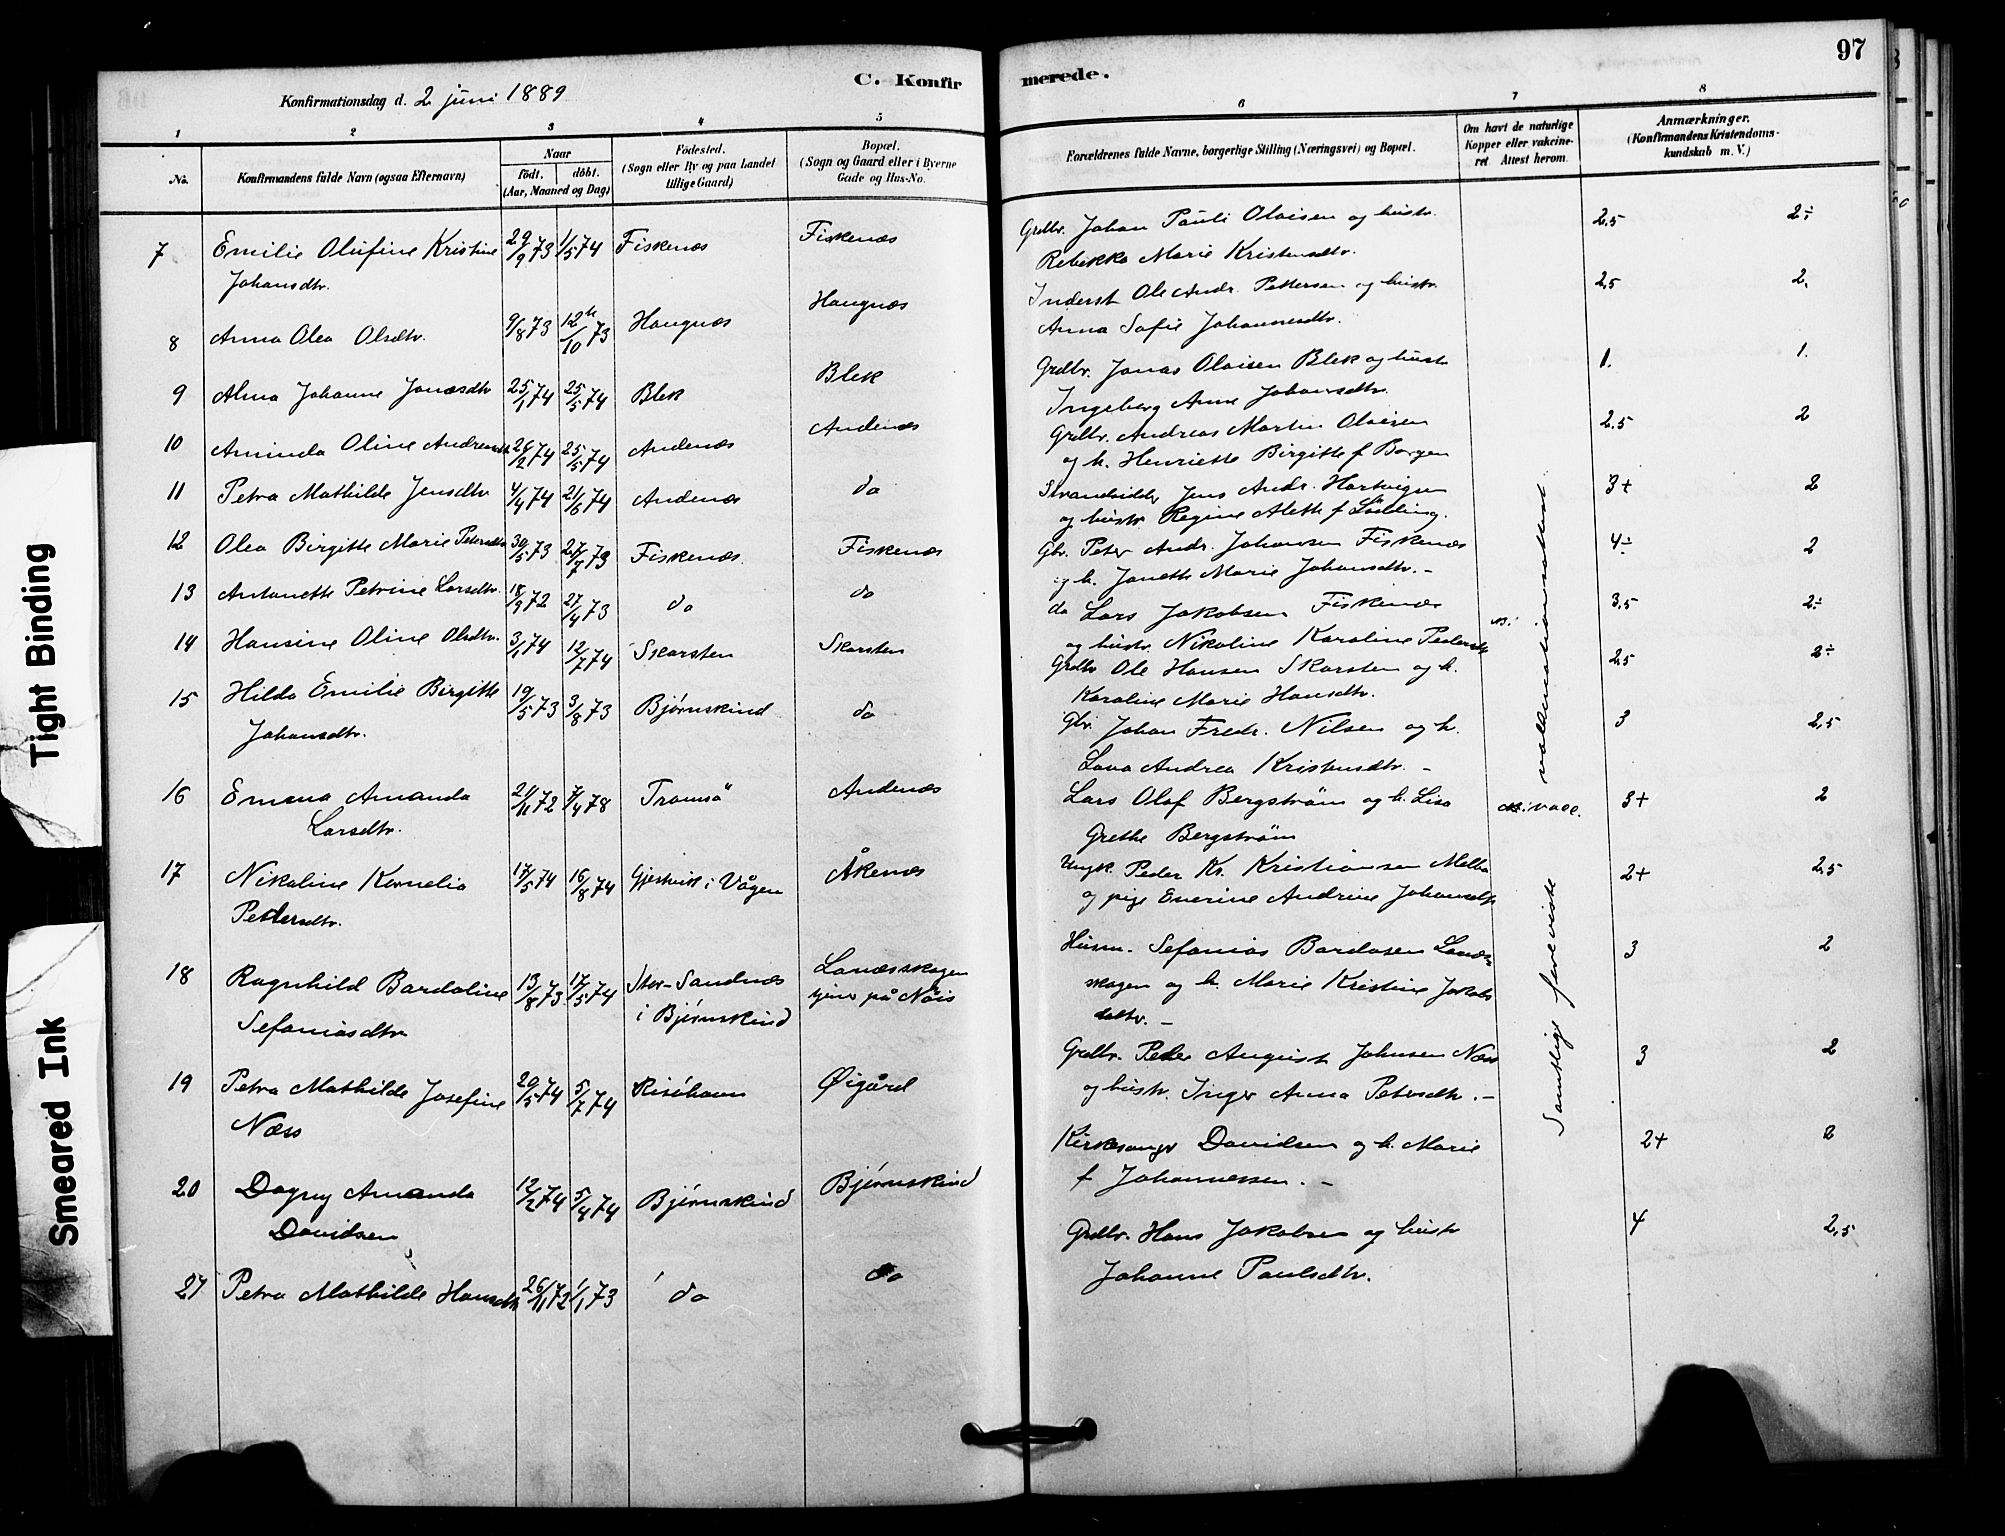 97
C. Konfirmerede.
Konfirmationsdag d. 2 juni 1889
1 2 3 4 5 6 7 8
No.
Konfirmandens fulde Navn (ogsaa Efternavn)
Naar
født. døbt.
(Aar, Maaned og Dag)
Fødested.
(Sogn eller By og paa Landet
tillige Gaard)
Bopæl.
(Sogn og Gaard eller i Byerne
Gade og Hus-No.
Forældrenes fulde Navne, borgerlige Stilling (Næringsvei) og Bopæl.
Om havt de naturlige
Kopper eller vakcine-
ret Attest herom.
Anmærkninger.
(Konfirmandens Kristendoms-
kundskab m. V.)
7 Emilie Olufine Kristine 29/9 73 1/5 74 Fiskenæs Fiskenæs Grdbr. Johan Pauli Olaisen og hustr. 2,5 2÷
Johansdtr. Rebekka Marie Kristensdtr.
8 Anna Olea Olsdtr. 9/8 73 12/10 73 Haugnæs Haugnæs Inderst Ole Andr. Pettersen og hustr. 2,5 2.
Anna Sofie Johannesdtr.
9 Alma Johanne Jonasdtr 25/1 74 25/5 74 Blek Blek Grdbr. Jonas Olaisen Blek og hustr. 1. 1.
Ingeberg Anne Johansdtr.
10 Aminda Oline Andreasdtr 26/2 74 25/5 74 Andenæs Andenæs Grdbr. Andreas Martin Olaisen 2,5 2
og h. Henriette Birgitte f Borgen
11 Petra Mathilde Jensdtr 4/4 74 21/6 74 Andenæs do Strandsidder Jens Andr. Hartvigsen 3+ 2
og hustr Regine Aleth f
12 Olea Birgitte Marie Petersdtr 30/5 73 27/7 73 Fiskenæs. Fiskenæs Gbr. Peter Andr. Johansen Fiskenæs 4÷ 2
og h. Janette Marie Johansdtr. -
13 Antonette Petrine Larsdtr. 18/9 72 27/4 73 do do do Lars Jakobsen Fiskenæs 3,5 2÷
og hustr. Nikoline Karoline Pedersdtr
14 Hansine Oline Olsdtr. 3/1 74 12/7 74 Skarsten Skarsten Grdbr Ole Hansen Skarsten og h. 2,5 2÷
Karoline Marie Hansdtr.
15 Hilda Emilie Birgitte 19/5 73 3/8 73 Bjørnskind do Gbr. Johan Fredr. Nilsen og h. 3 2,5
Johansdtr. Lava Andrea Kristensdtr. -
16 Emma Amanda 21/11 72 7/4 78 Tromsö Andenæs Lars Olaf Bergström og h. Lisa 3+ 2
Larsdtr. Grethe Bergström
17 Nikoline Kornelia 17/5 74 16/8 74 Gjestvik i Vågen Åkenæs Ungk. Peder Kr. Kristiansen Melbo 2+ 2,5
Pedersdtr. og pige Enerine Andrine Johansdtr
18 Ragnhild Bardoline 13/8 73 17/5 74 Stor-Sandnæs Lanæsskogen Husm. Sefanias Bardosen Lanæs= 3 2
Sefaniasdtr i Bjørnskind tjener på Nöis skogen og h. Marie Kristine Jakobs
datter. -
19 Petra Mathilde Josefine 20/5 74 5/7 74 Risöhavn Øigård Grdbr. Peder August Johnsen Næss 3 2
Næss og hustr. Inger Anna Petersdtr. -
20 Dagny Amanda 12/2 74 5/4 74 Bjørnskind Bjørnskind Kirkesanger Davidsen og h. Marie 2+ 2
Davidsen f Johannessen. -
21 Petra Mathilde Hansdtr 26/11 72 1/1 73 do do Grdbr. Hans Jakobsen og hustr 4 2,5
Johanne Paulsdtr.
Samtlige foreviste vakcinationsattest
Tight Binding
Smeared Ink